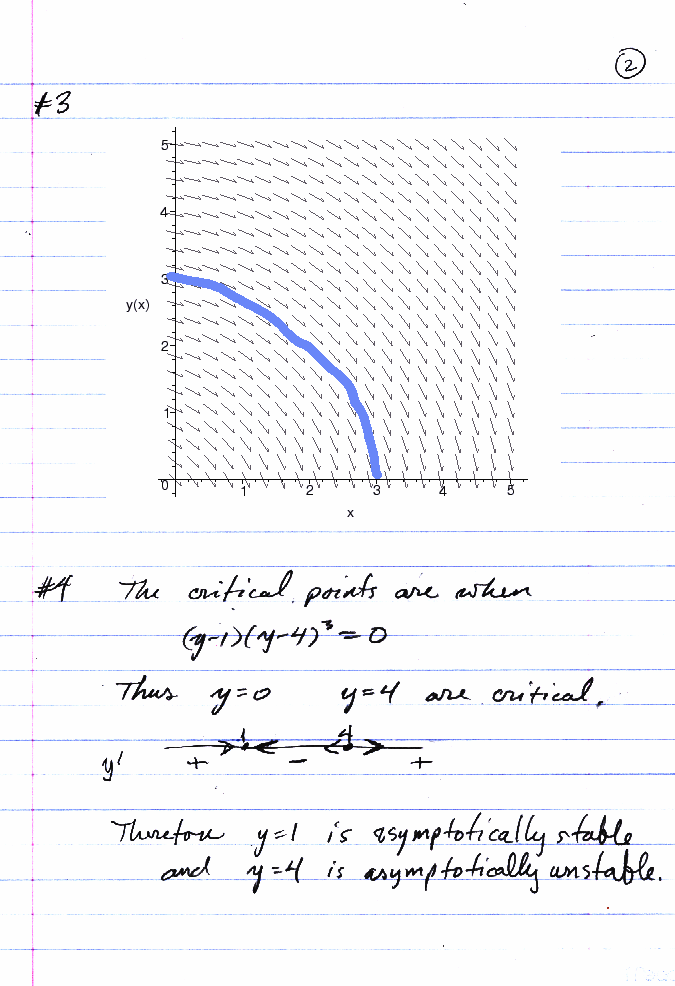 2
#3
5
4
3
y(x)
2
1
0 1 2 3 4 5
x
#4 The critical points are when
(y-1)(y-4)³ = 0
Thus y=0 y=4 are critical.
1 4
y' + - +
Therefore y=1 is asymptotically stable
and y=4 is asymptotically unstable.